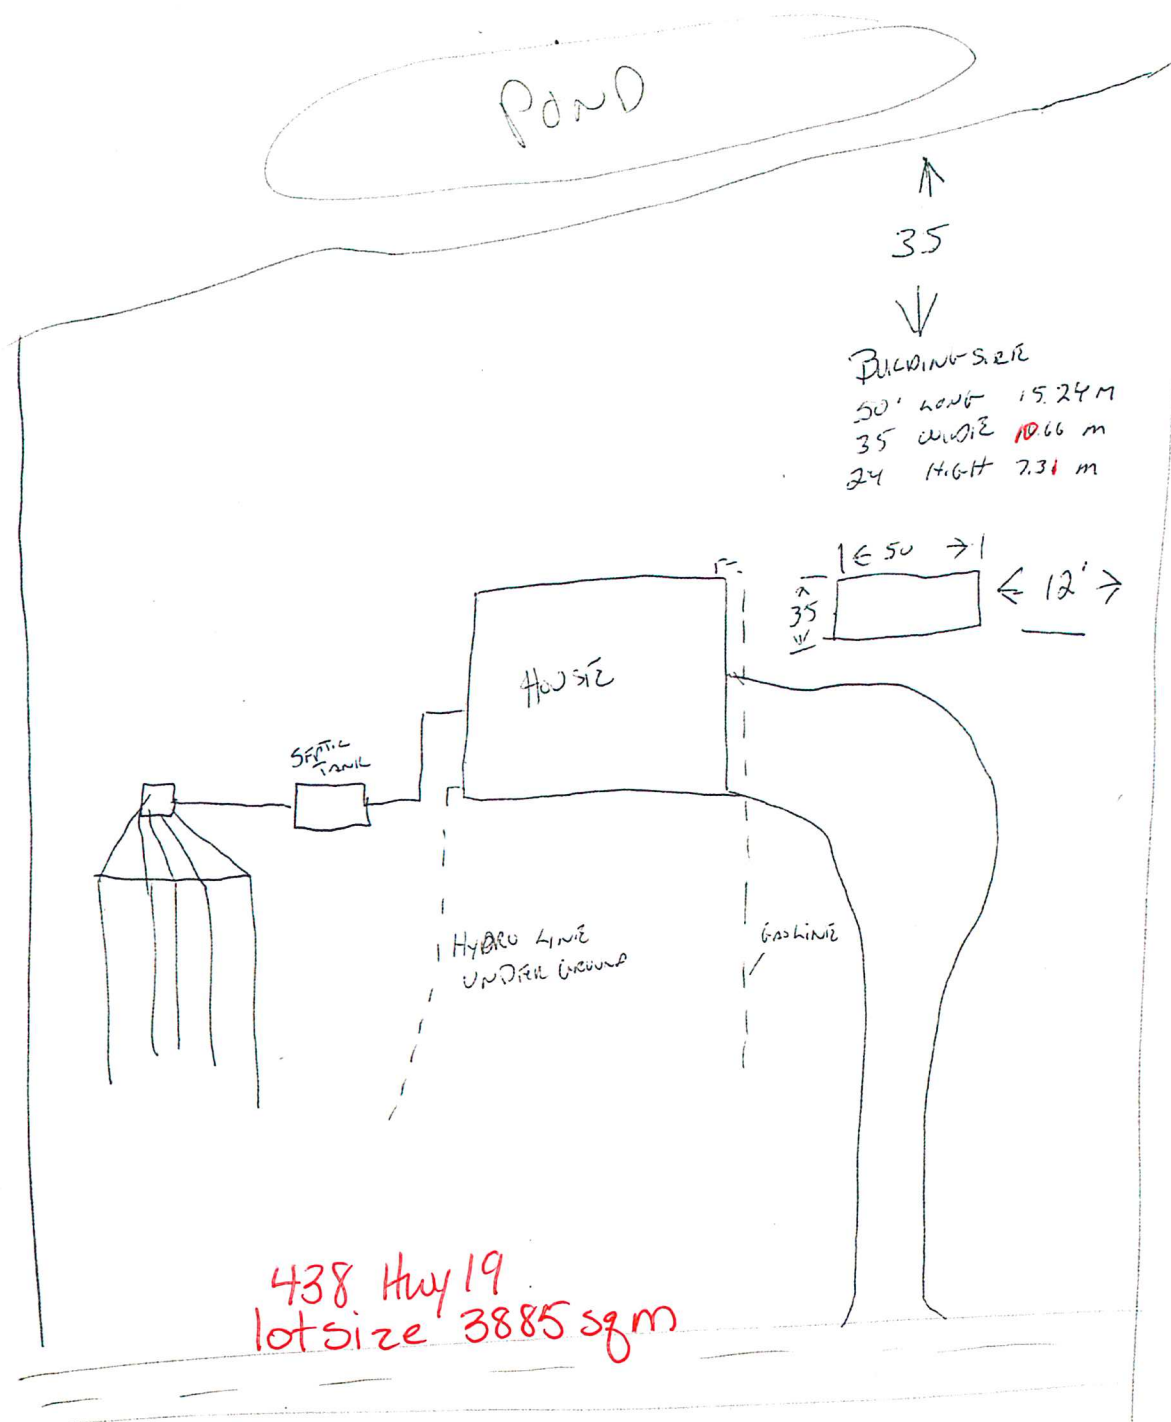 POND
35
BUILDING SIZE
50' LONG 15.24 M
35 WIDE 10.66 m
24 HIGH 7.31 m
50
12'
35
HOUSE
SEPTIC
TANK
HYDRO LINE
UNDER GROUND
GASLINE
438 Hwy 19
lot size 3885 sqm